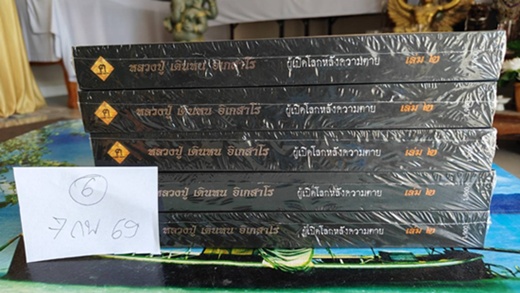 ฅ หลวงปู่ เดินหน อิเกสาโร ผู้เปิดโลกหลังความตาย เล่ม ๒
ฅ หลวงปู่ เดินหน อิเกสาโร ผู้เปิดโลกหลังความตาย เล่ม ๒
ฅ หลวงปู่ เดินหน อิเกสาโร ผู้เปิดโลกหลังความตาย เล่ม ๒
หลวงปู่ เดินหน อิเกสาโร ผู้เปิดโลกหลังความตาย เล่ม ๒
หลวงปู่ เดินหน อิเกสาโร ผู้เปิดโลกหลังความตาย เล่ม ๒
6
7 กพ 69